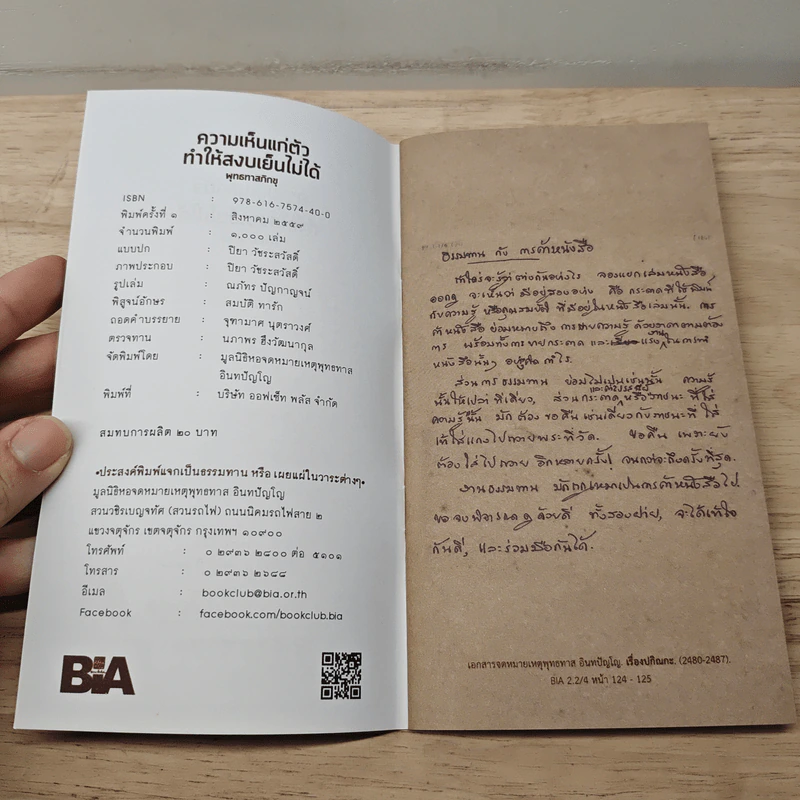 ความเห็นแก่ตัว
ทำให้สงบเย็นไม่ได้
พุทธทาสภิกขุ
ISBN : 978-616-7574-40-0
พิมพ์ครั้งที่ ๑ : สิงหาคม ๒๕๕๙
จำนวนพิมพ์ : ๑,๐๐๐ เล่ม
แบบปก : ปิยา วัชระสวัสดิ์
ภาพประกอบ : ปิยา วัชระสวัสดิ์
รูปเล่ม : ณภัทร ปัญกาญจน์
พิสูจน์อักษร : สมบัติ ทารัก
ถอดคำบรรยาย : จุฑามาศ นุตราวงค์
ตรวจทาน : นภาพร ฮึงวัฒนากุล
จัดพิมพ์โดย : มูลนิธิหอจดหมายเหตุพุทธทาส
อินทปัญโญ
พิมพ์ที่ : บริษัท ออฟเซ็ท พลัส จำกัด
สมทบการผลิต ๒๐ บาท
•ประสงค์พิมพ์แจกเป็นธรรมทาน หรือ เผยแผ่ในวาระต่างๆ•
มูลนิธิหอจดหมายเหตุพุทธทาส อินทปัญโญ
สวนวชิรเบญจทัศ (สวนรถไฟ) ถนนนิคมรถไฟสาย ๒
แขวงจตุจักร เขตจตุจักร กรุงเทพฯ ๑๐๙๐๐
โทรศัพท์ : ๐ ๒๙๓๖ ๒๘๐๐ ต่อ ๕๑๐๑
โทรสาร : ๐ ๒๙๓๖ ๒๖๘๘
อีเมล : bookclub@bia.or.th
Facebook : facebook.com/bookclub.bia
BIA
ธรรมทาน กับ การค้าหนังสือ
ทำไฉนจะรู้ว่าต่างกันอย่างไร ลองแยกเล่มหนังสือ
ออกดู จะเห็นว่า มีอยู่สองอย่าง คือ กระดาษที่ใช้พิมพ์
กับความรู้ หรือคุณสมบัติ ที่มีอยู่ในหนังสือเล่มนั้น. การ
ค้าหนังสือ ย่อมหมายถึง การขายความรู้ ด้วยราคาตามต้อง
การ พร้อมทั้งการขายกระดาษ และแรงงานในการทำ
หนังสือนั้นๆ เอากำไร.
ส่วนการธรรมทาน ย่อมไม่เป็นเช่นนั้น ความรู้
นั้นให้เปล่า ทีเดียว, ส่วนกระดาษ หรือภาชนะ ที่ใส่
ความรู้นั้น มักต้องขอคืน เช่นเดียวกับภาชนะ ที่ใส่
แกงไปถวายพระที่วัด. ขอคืน เพราะยัง
ต้องใส่ไปถวาย อีกหลายครั้ง! จนกว่าจะถึงครั้งที่สุด.
งานธรรมทาน มักถูกเหมาเป็นการค้าหนังสือไป
ขอจงพิจารณาดูด้วยดี ทั้งสองฝ่าย, จะได้เข้าใจ
กันดี, และร่วมมือกันได้.
เอกสารจดหมายเหตุพุทธทาส อินทปัญโญ. เรื่องปกิณกะ. (2480-2487).
BIA 2.2/4 หน้า 124 - 125